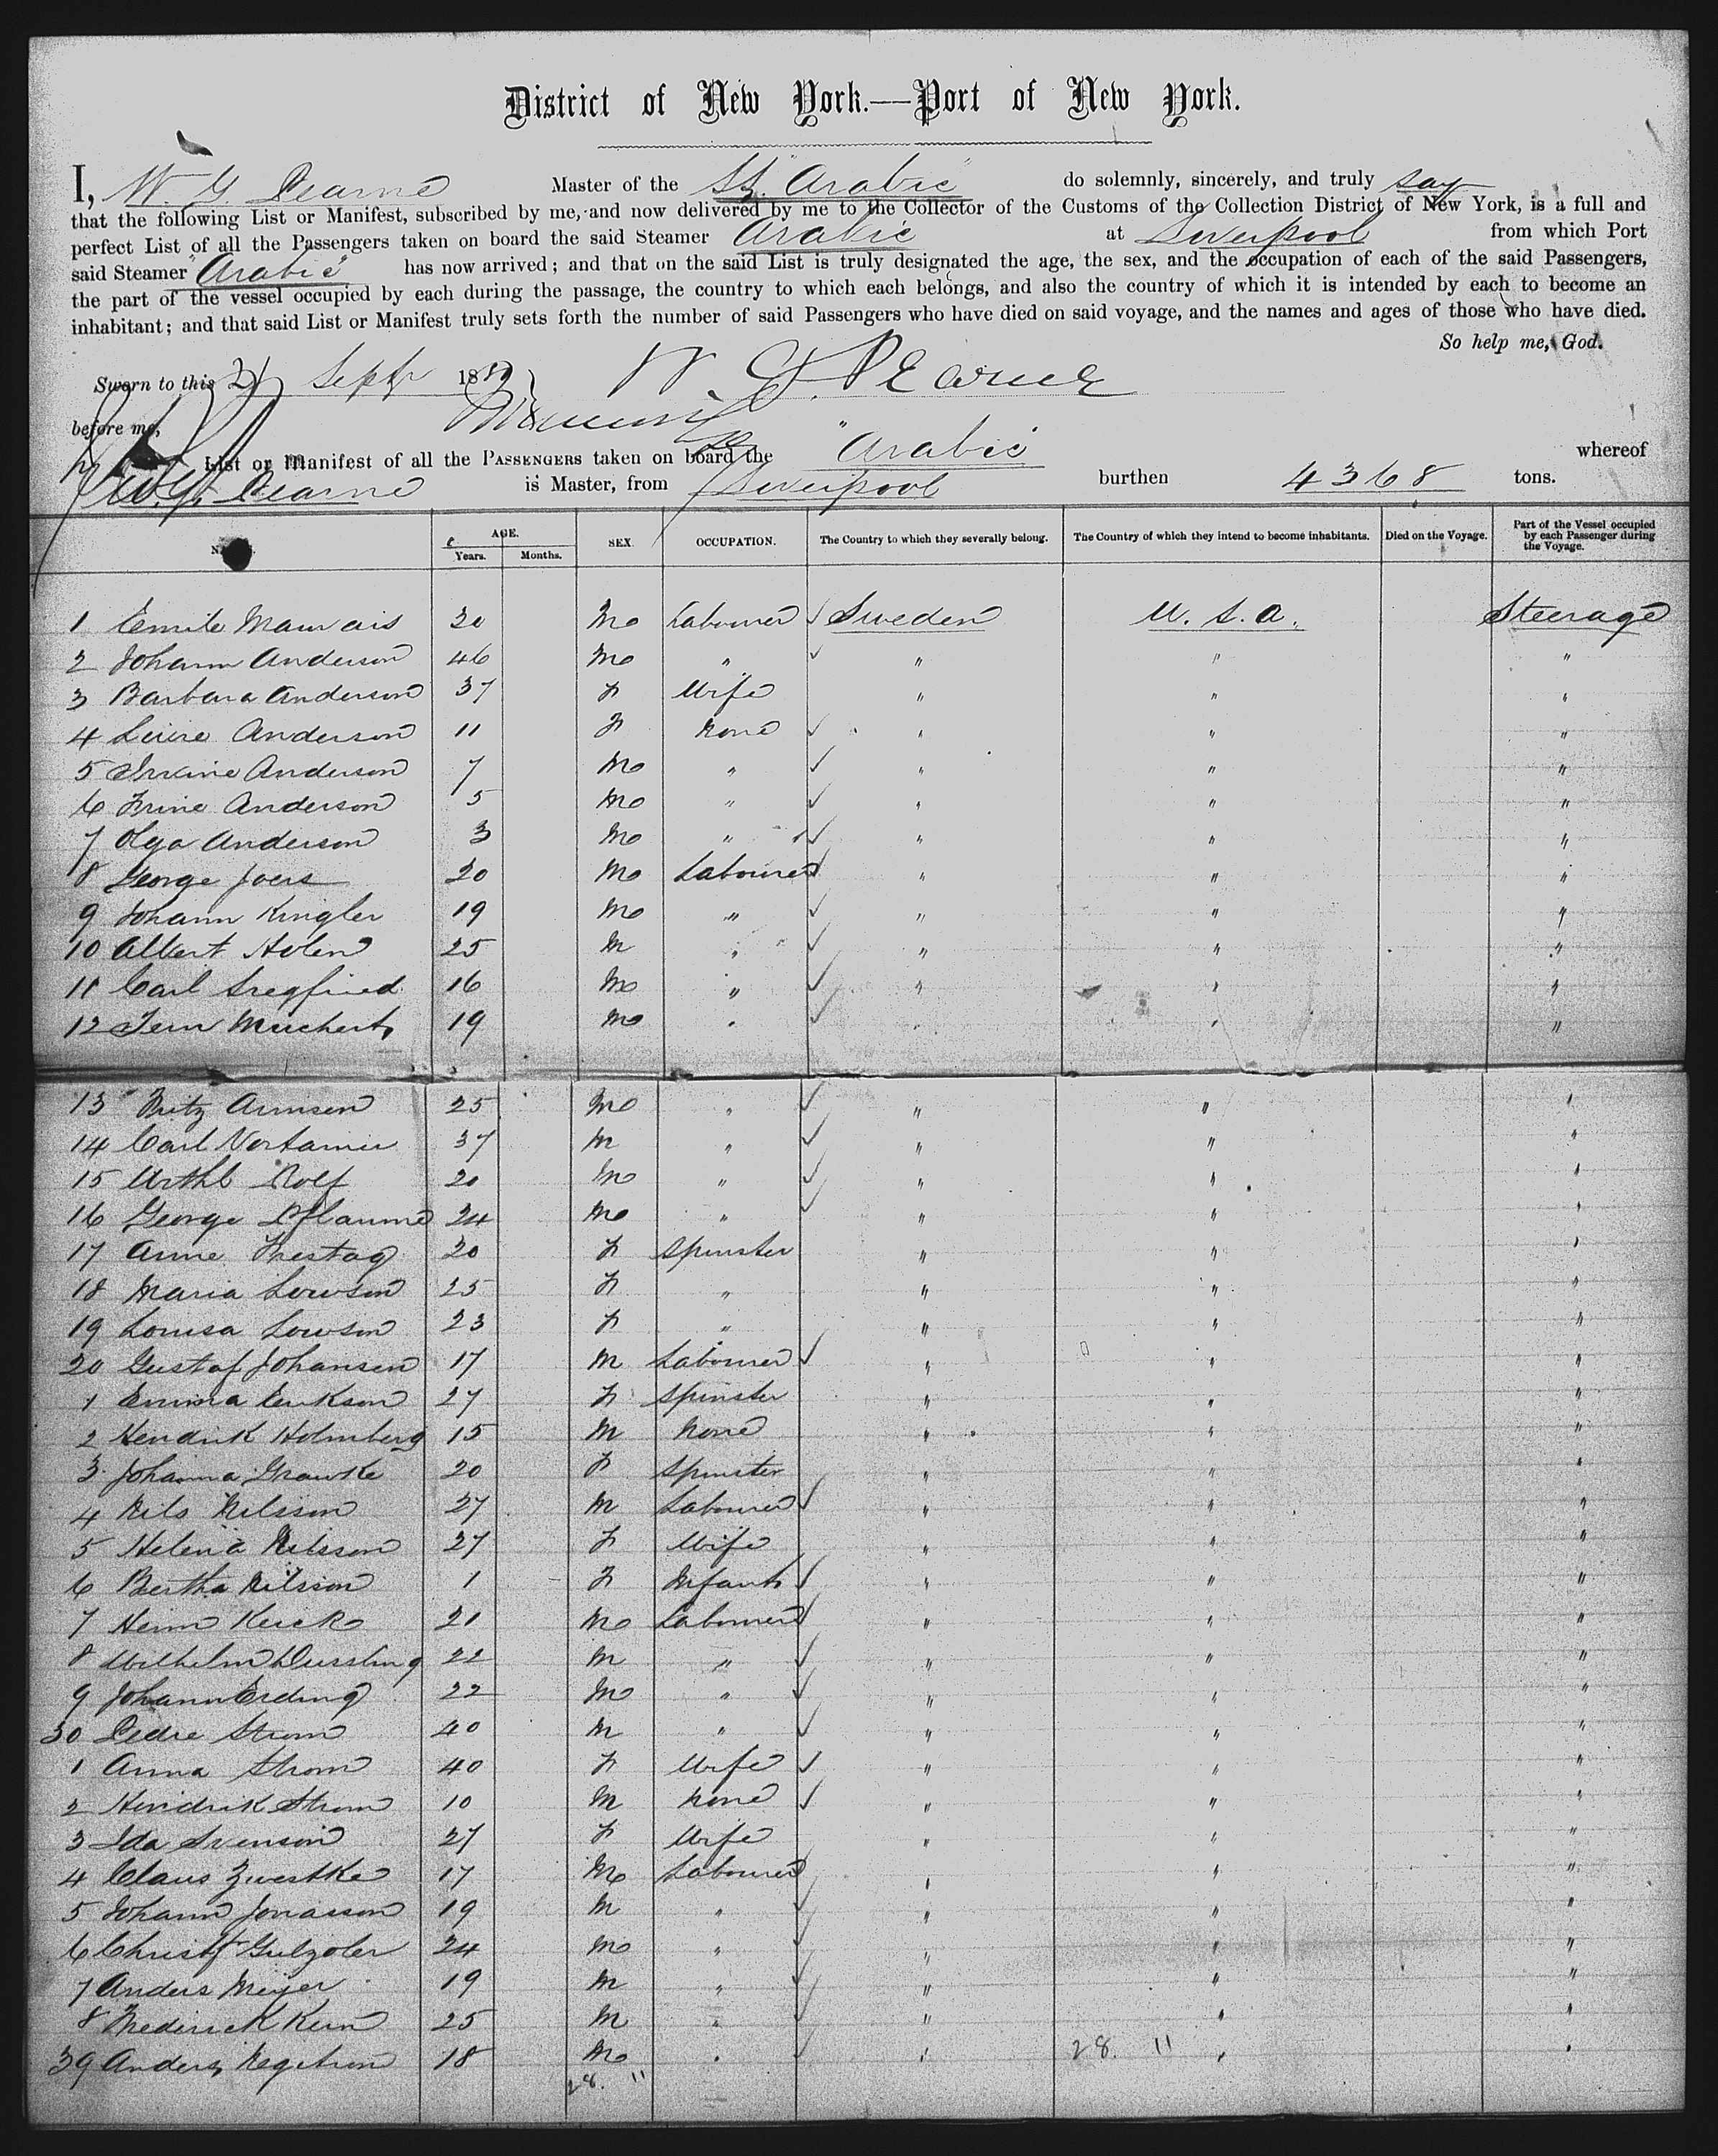 District of New York.—Port of New York.
I, W. G. Pearne Master of the SS. "Arabic" do solemnly, sincerely, and truly say
that the following List or Manifest, subscribed by me, and now delivered by me to the Collector of the Customs of the Collection District of New York, is a full and
perfect List of all the Passengers taken on board the said Steamer Arabic at Liverpool from which Port
said Steamer "Arabic" has now arrived; and that on the said List is truly designated the age, the sex, and the occupation of each of the said Passengers,
the part of the vessel occupied by each during the passage, the country to which each belongs, and also the country of which it is intended by each to become an
inhabitant; and that said List or Manifest truly sets forth the number of said Passengers who have died on said voyage, and the names and ages of those who have died.
So help me, God.
Sworn to this 21 Septr 188 W. G. Pearne
before me,
List or Manifest of all the PASSENGERS taken on board the "Arabic" whereof
W. G. Pearne is Master, from Liverpool burthen 4368 tons.
AGE. SEX. OCCUPATION. The Country to which they severally belong. The Country of which they intend to become inhabitants. Died on the Voyage. Part of the Vessel occupied by each Passenger during the Voyage.
Years. Months.
1 Emile Mauvais 20 M Labourer ✓ Sweden U. S. A. Steerage
2 Johann Anderson 46 M " ✓ " " "
3 Barbara Anderson 37 F Wife " " "
4 Anderson 11 F None ✓ " " "
5 Anderson 7 M " ✓ " " "
6 Anderson 5 M " ✓ " " "
7 Olga Anderson 3 M " ✓ " " "
8 George Joers 20 M Labourer ✓ " " "
9 Johann Kingler 19 M " ✓ " " "
10 Albert Holen 25 M " ✓ " " "
11 Carl Siegfried 16 M " ✓ " " "
12 19 M " ✓ " " "
13 Fritz Armsen 25 M " ✓ " " "
14 Carl 37 M " ✓ " " "
15 Rolf 20 M " ✓ " " "
16 George Pflaume 24 M " ✓ " " "
17 Anne Frestag 20 F Spinster " " "
18 Maria Lowson 25 F " " " "
19 Louisa Lowson 23 F " " " "
20 Gustaf Johansen 17 M Labourer ✓ " " "
1 Emma Erikson 27 F Spinster " " "
2 Hendrik Holmberg 15 M None " " "
3 Johanna Grawke 20 F Spinster " " "
4 Nils Nilsson 27 M Labourer ✓ " " "
5 Helena Nilsson 27 F Wife " " "
6 Bertha Nilsson 1 F Infant ✓ " " "
7 21 M Labourer ✓ " " "
8 Wilhelm 22 M " ✓ " " "
9 Johann Erding 22 M " ✓ " " "
30 Pedre Strom 40 M " ✓ " " "
1 Anna Strom 40 F Wife ✓ " " "
2 Hendrik Strom 10 M None ✓ " " "
3 Ida Svenson 27 F Wife " " "
4 Claus Zwestke 17 M Labourer " " "
5 Johann Jonasson 19 M " ✓ " " "
6 Christ Gulzoler 24 M " ✓ " " "
7 Anders Meyer 19 M " ✓ " " "
8 Frederick Kern 25 M " ✓ " " "
39 Anders 18 M " ✓ " 28. 11 " "
28. 11